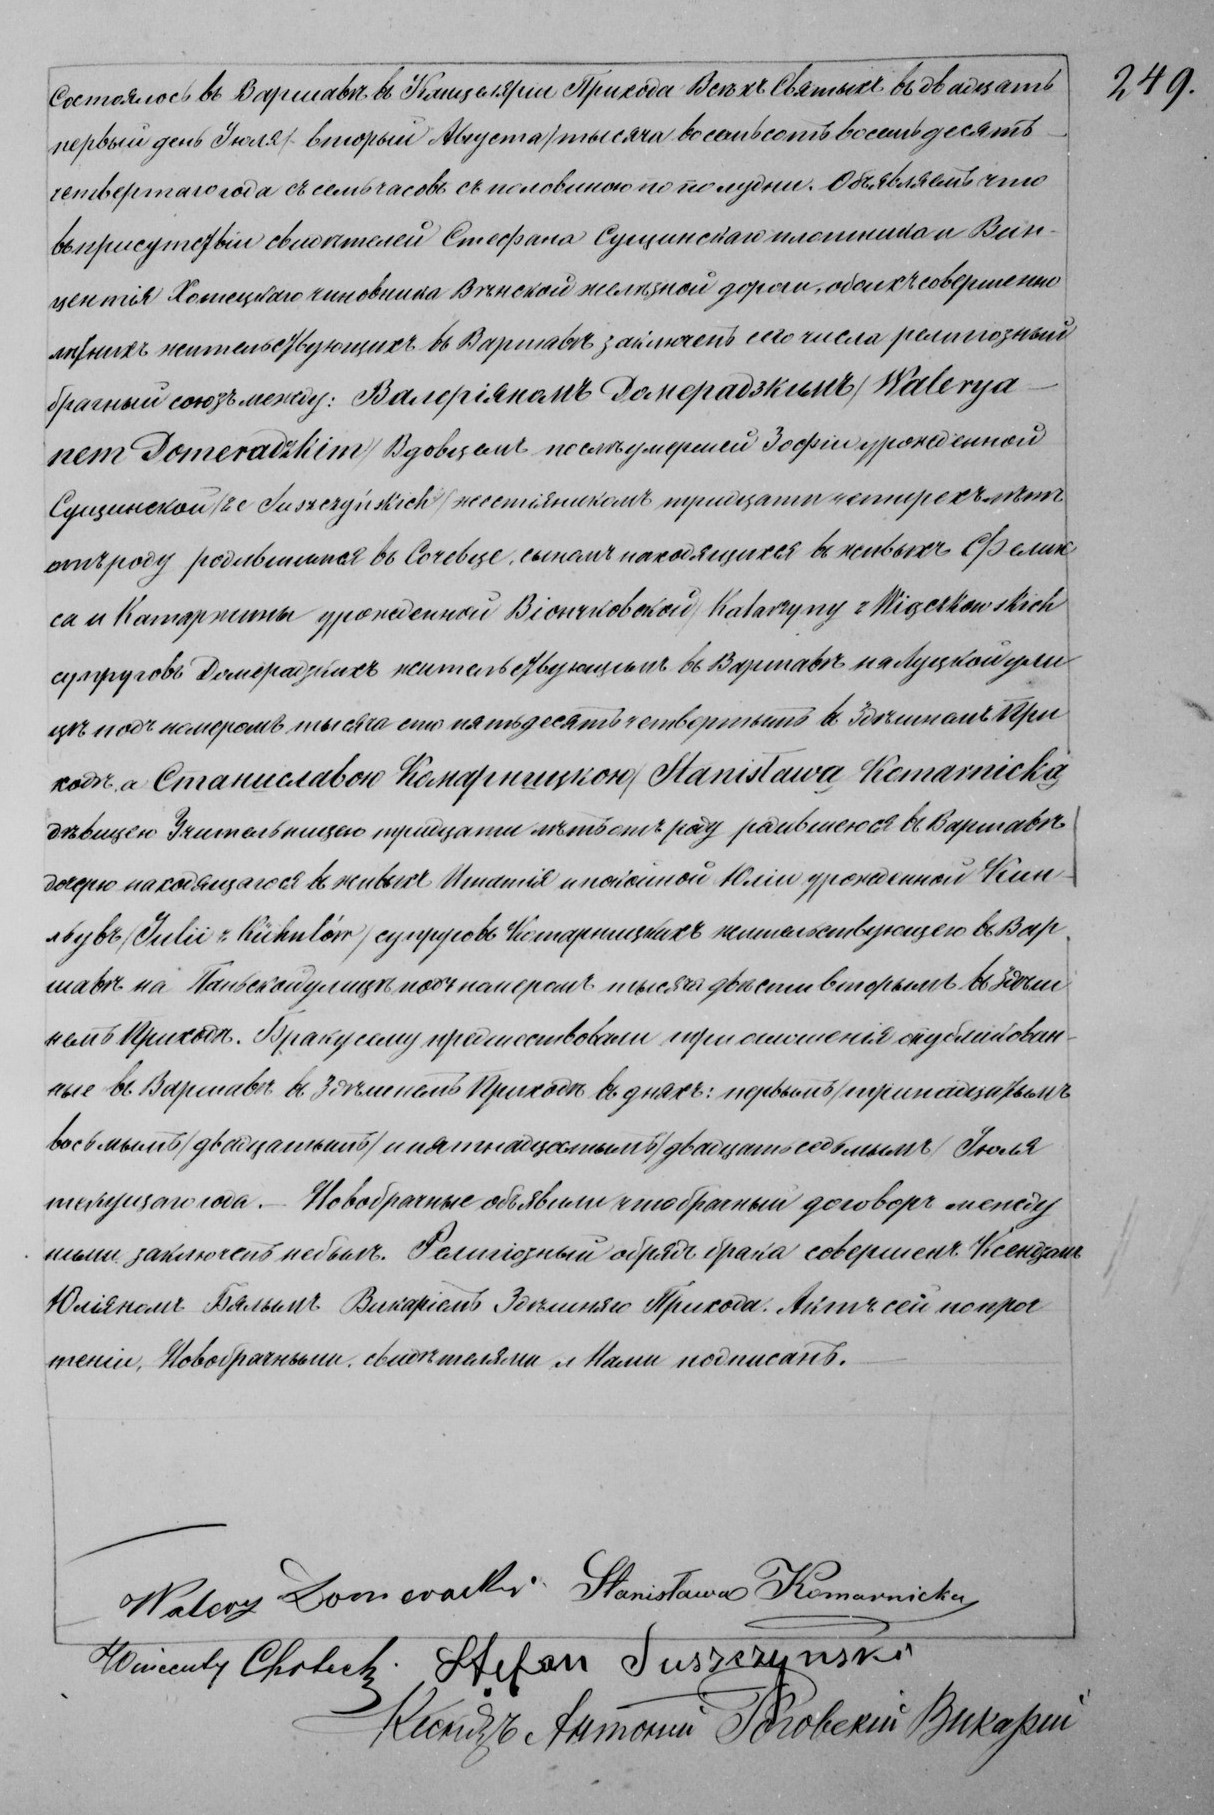 249.
Состоялось въ Варшавѣ въ Канцелярiи Прихода Всѣхъ Святыхъ въ двадцать
первый день Iюля / вторый Августа / тысяча восемьсотъ восемьдесятъ
четвертаго года въ семь часовъ съ половиною по полудни. Объявляемъ что
въ присутствiи свидѣтелей Стефана Сущинскаго плотника и Вин-
центiя Хотецкаго чиновника Вѣнской желѣзной дороги, обоихъ совершенно
лѣтнихъ жительствующихъ въ Варшавѣ заключенъ сего числа религiозный
брачный союзъ между: Валерiяномъ Домерадзкимъ / Walerya-
nem Domeradzkim / Вдовцемъ послѣ умершей Зофiи урожденной
Сущинской / z Suszczyńskich / жестяникомъ тридцати четырехъ лѣтъ
отъ роду родившимся въ Сочевце, сыномъ находящихся въ живыхъ Фелик
са и Катаржины урожденной Вiончковской / Katarzyny z Więczkowskich
супруговъ Домерадзкихъ жительствующимъ въ Варшавѣ на Луцкой ули
цѣ подъ номеромъ тысяча сто пятьдесятъ четвертымъ въ Здѣшномъ При
ходѣ, а Станиславою Комарницкою / Stanisławą Komarnicką
дѣвицею Учительницею тридцати лѣтъ отъ роду родившеюся въ Варшавѣ
дочерю находящагося въ живыхъ Игнатiя и покойной Юлiи урожденной Кин-
львъ / Julii z Kühnlów / супруговъ Комарницкихъ жительствующею въ Вар
шавѣ на Паньской улицѣ подъ номеромъ тысяча двѣсти вторымъ въ Здѣш
немъ Приходѣ. Браку сему предшествовали три оглашенiя опубликован-
ные въ Варшавѣ въ Здѣшнемъ Приходѣ въ дняхъ: первымъ / тринадцатымъ
восьмымъ / двадцатымъ / и пятнадцатымъ / двадцать седьмымъ / Iюля
текущаго года. — Новобрачные объявили что брачный договоръ между
ними заключенъ небылъ. Религiозный обрядъ брака совершенъ Ксендзомъ
Юлiяномъ Бялымъ Викарiемъ Здѣшняго Прихода. Актъ сей по проч
тенiи, Новобрачными, свидѣтелями и Нами подписанъ. —
Walery Domeradzki Stanisława Komarnicka
Wincenty Chotecki Stefan Suszczynski
Ксендзъ Антонiй Роговскiй Викарiй